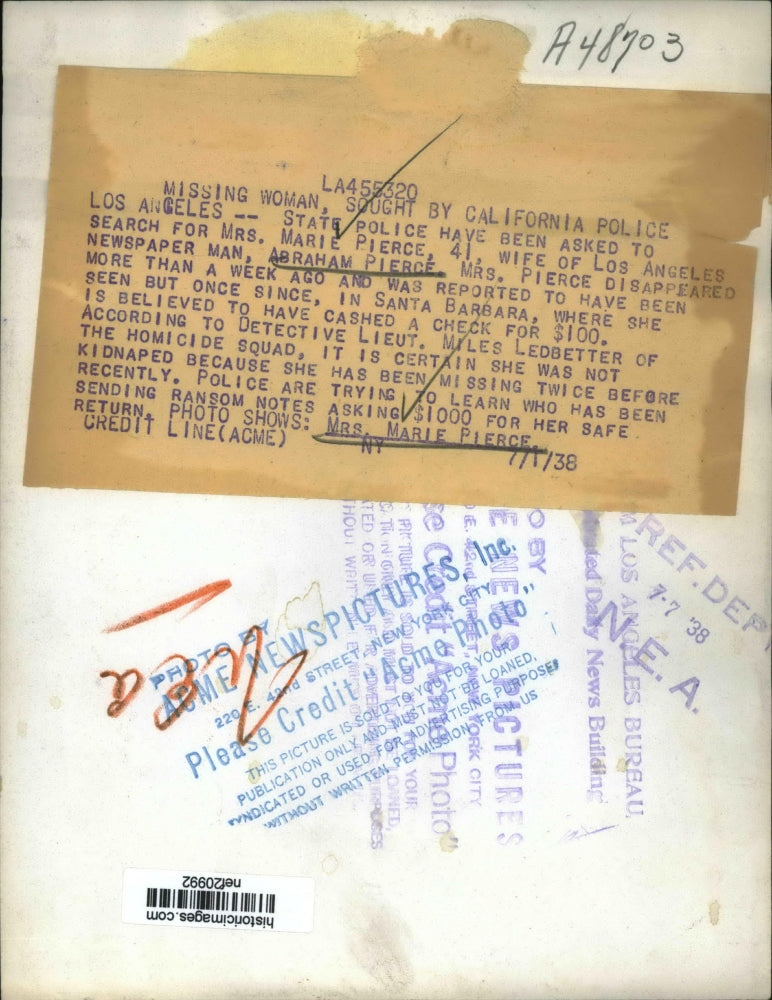 A48703
LA455320
MISSING WOMAN, SOUGHT BY CALIFORNIA POLICE
LOS ANGELES -- STATE POLICE HAVE BEEN ASKED TO
SEARCH FOR MRS. MARIE PIERCE, 41, WIFE OF LOS ANGELES
NEWSPAPER MAN, ABRAHAM PIERCE. MRS. PIERCE DISAPPEARED
MORE THAN A WEEK AGO AND WAS REPORTED TO HAVE BEEN
SEEN BUT ONCE SINCE, IN SANTA BARBARA, WHERE SHE
IS BELIEVED TO HAVE CASHED A CHECK FOR $100.
ACCORDING TO DETECTIVE LIEUT. MILES LEDBETTER OF
THE HOMICIDE SQUAD, IT IS CERTAIN SHE WAS NOT
KIDNAPED BECAUSE SHE HAS BEEN MISSING TWICE BEFORE
RECENTLY. POLICE ARE TRYING TO LEARN WHO HAS BEEN
SENDING RANSOM NOTES ASKING $1000 FOR HER SAFE
RETURN. PHOTO SHOWS: MRS. MARIE PIERCE.
CREDIT LINE(ACME) NY 7/1/38
REF. DEPT
7-7 '38
N. E. A.
nea
PHOTO BY
ACME NEWSPICTURES, Inc.
220 E. 42nd STREET, NEW YORK CITY
Please Credit "Acme Photo"
THIS PICTURE IS SOLD TO YOU FOR YOUR
PUBLICATION ONLY AND MUST NOT BE LOANED,
SYNDICATED OR USED FOR ADVERTISING PURPOSES
WITHOUT WRITTEN PERMISSION FROM US
O BY
E NEWS PICTURES
YORK CITY
se Credit "Acme Photo"
LOS ANGELES BUREAU,
Daily News Building
historicimages.com
nef20992